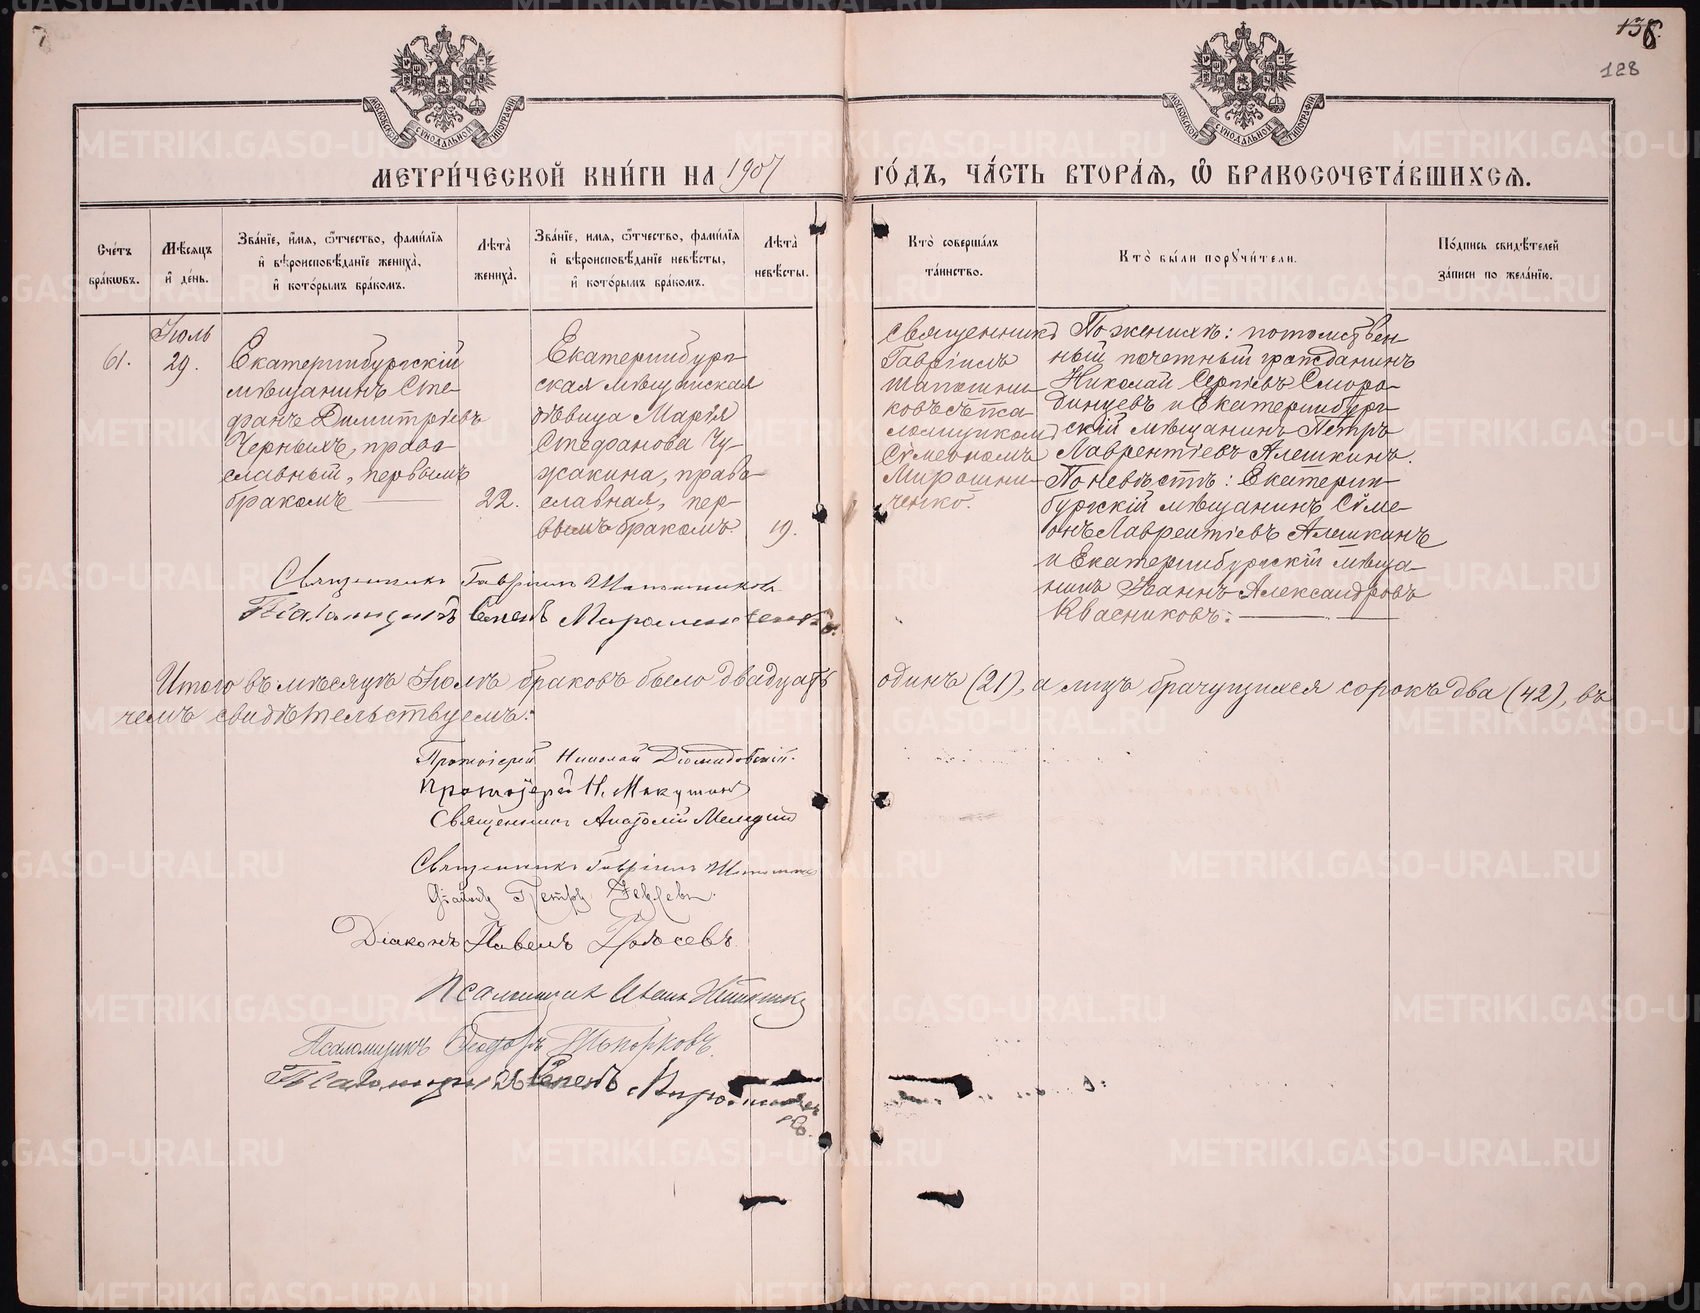 138.
128
МОСКОВСКОЙ СѴНОДАЛЬНОЙ ТИПОГРАФІИ
МОСКОВСКОЙ СѴНОДАЛЬНОЙ ТИПОГРАФІИ
МЕТРИ́ЧЕСКОЙ КНИ́ГИ НА 1907 ГО́ДЪ, ЧА́СТЬ ВТОРА́Я, Ѽ БРАКОСОЧЕТА́ВШИХСЯ.
Сче́тъ бра́кѡвъ.
Мѣ́сяцъ и҆ де́нь.
Зва́нїе, и҆́мя, ѻ҆́тчество, фами́лїя
и҆ вѣроисповѣ́данїе жениха̀,
и҆ кото́рымъ бра́комъ.
Лѣ́та̀ жениха̀.
Зва́нїе, имя, ѻ҆́тчество, фами́лїя
и҆ вѣроисповѣ́данїе невѣ́сты,
и҆ кото́рымъ бра́комъ.
Лѣ́та̀ невѣ́сты.
Кто̀ соверша́лъ
та́инство.
Кто̀ бы́ли порꙋчи́тели.
По́дпись свидѣ́телей
за́писи по жела́нїю.
Іюль
61.
29.
Екатеринбургскій
мѣщанинъ Сте-
фанъ Димитріевъ
Черныхъ, право-
славный, первымъ
бракомъ
22.
Екатеринбург-
ская мѣщанская
дѣвица Марія
Стефанова Чу-
жакина, право-
славная, пер-
вымъ бракомъ.
19.
Священникъ
Гавріилъ
Шапошни-
ковъ съ пса-
ломщикомъ
Сѵмеономъ
Мирошни-
ченко.
По женихѣ: потомствен-
ный почетный гражданинъ
Николай Сергіевъ Сморо-
динцевъ и Екатеринбург-
скій мѣщанинъ Петръ
Лаврентіевъ Алешкинъ.
По невѣстѣ: Екатерин-
бургскій мѣщанинъ Сѵме-
онъ Лаврентіевъ Алешкинъ
и Екатеринбургскій мѣща-
нинъ Іоаннъ Александровъ
Квасниковъ.
Священникъ Гавріилъ Шапошниковъ
Псаломщикъ Семенъ Мирошниченко
Итого въ мѣсяцѣ Іюлѣ браковъ было двадцать одинъ (21), а лицъ брачущихся сорокъ два (42), въ
чемъ свидѣтельствуемъ:
Протоіерей Николай Діомидовскій.
Протоіерей Н. Мякутинъ
Священникъ Анатолій
Священникъ Гавріилъ
Петръ
Діаконъ Павелъ
Псаломщикъ Иванъ
Псаломщикъ Ѳеодоръ
Псаломщикъ Семенъ Мирошниченко
METRIKI.GASO-URAL.RU